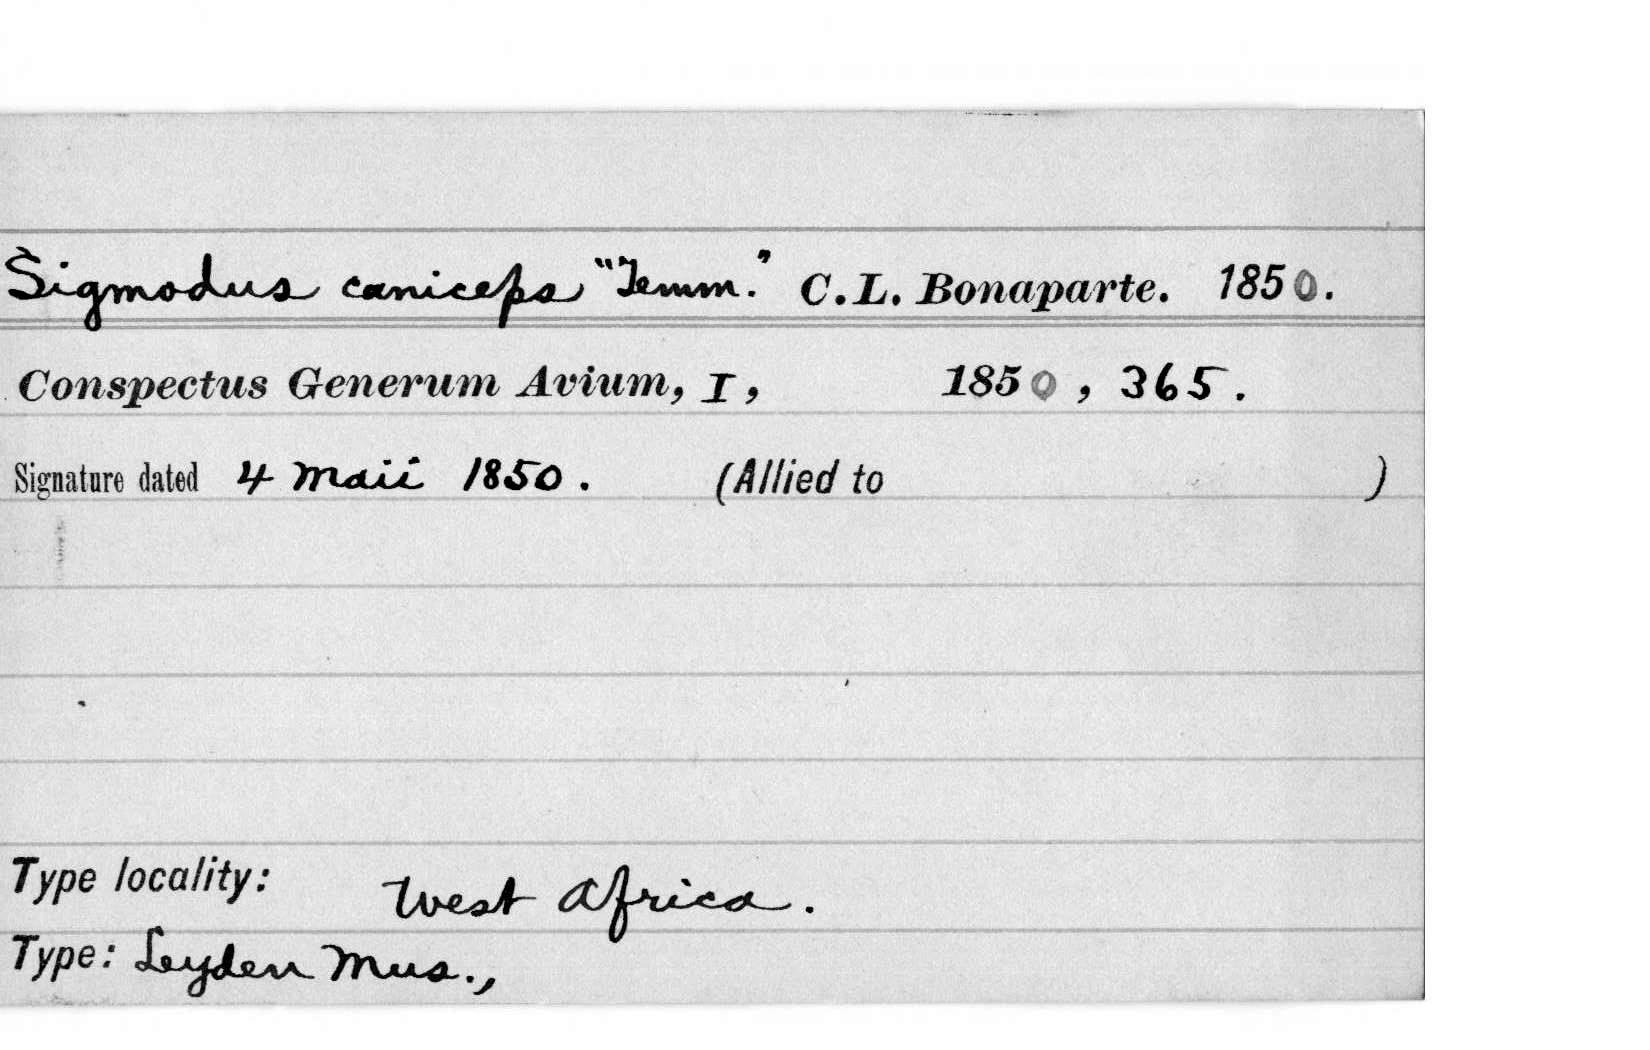 Sigmodus caniceps "Temm." C. L. Bonaparte. 1850.
Conspectus Generum Avium, I, 1850, 365.
Signature dated 4 Maii 1850. (Allied to )
Type locality: West Africa.
Type: Leyden Mus.,